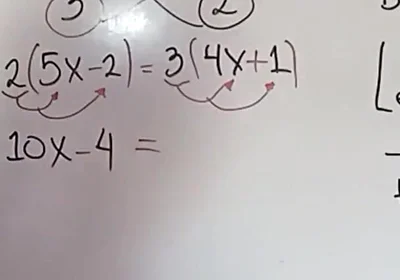 3 2
2(5x-2) = 3(4x+1)
10x-4 =